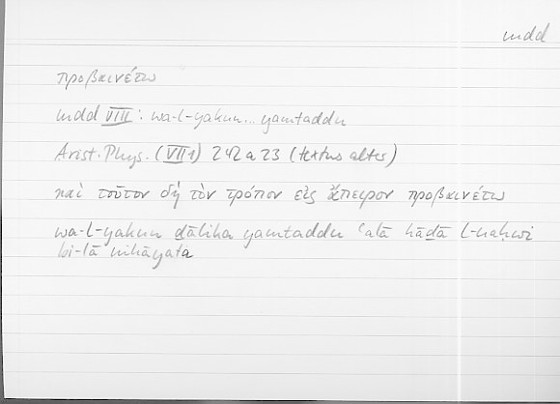 mdd
προβαινέτω
mdd VIII: wa-l-yakun... yamtaddu
Arist. Phys. (VII 1) 242 a 23 (textus alter)
καὶ τοῦτον δὴ τὸν τρόπον εἰς ἄπειρον προβαινέτω
wa-l-yakun ḏālika yamtaddu ʿalā hāḏā l-naḥwi
bi-lā nihāyata